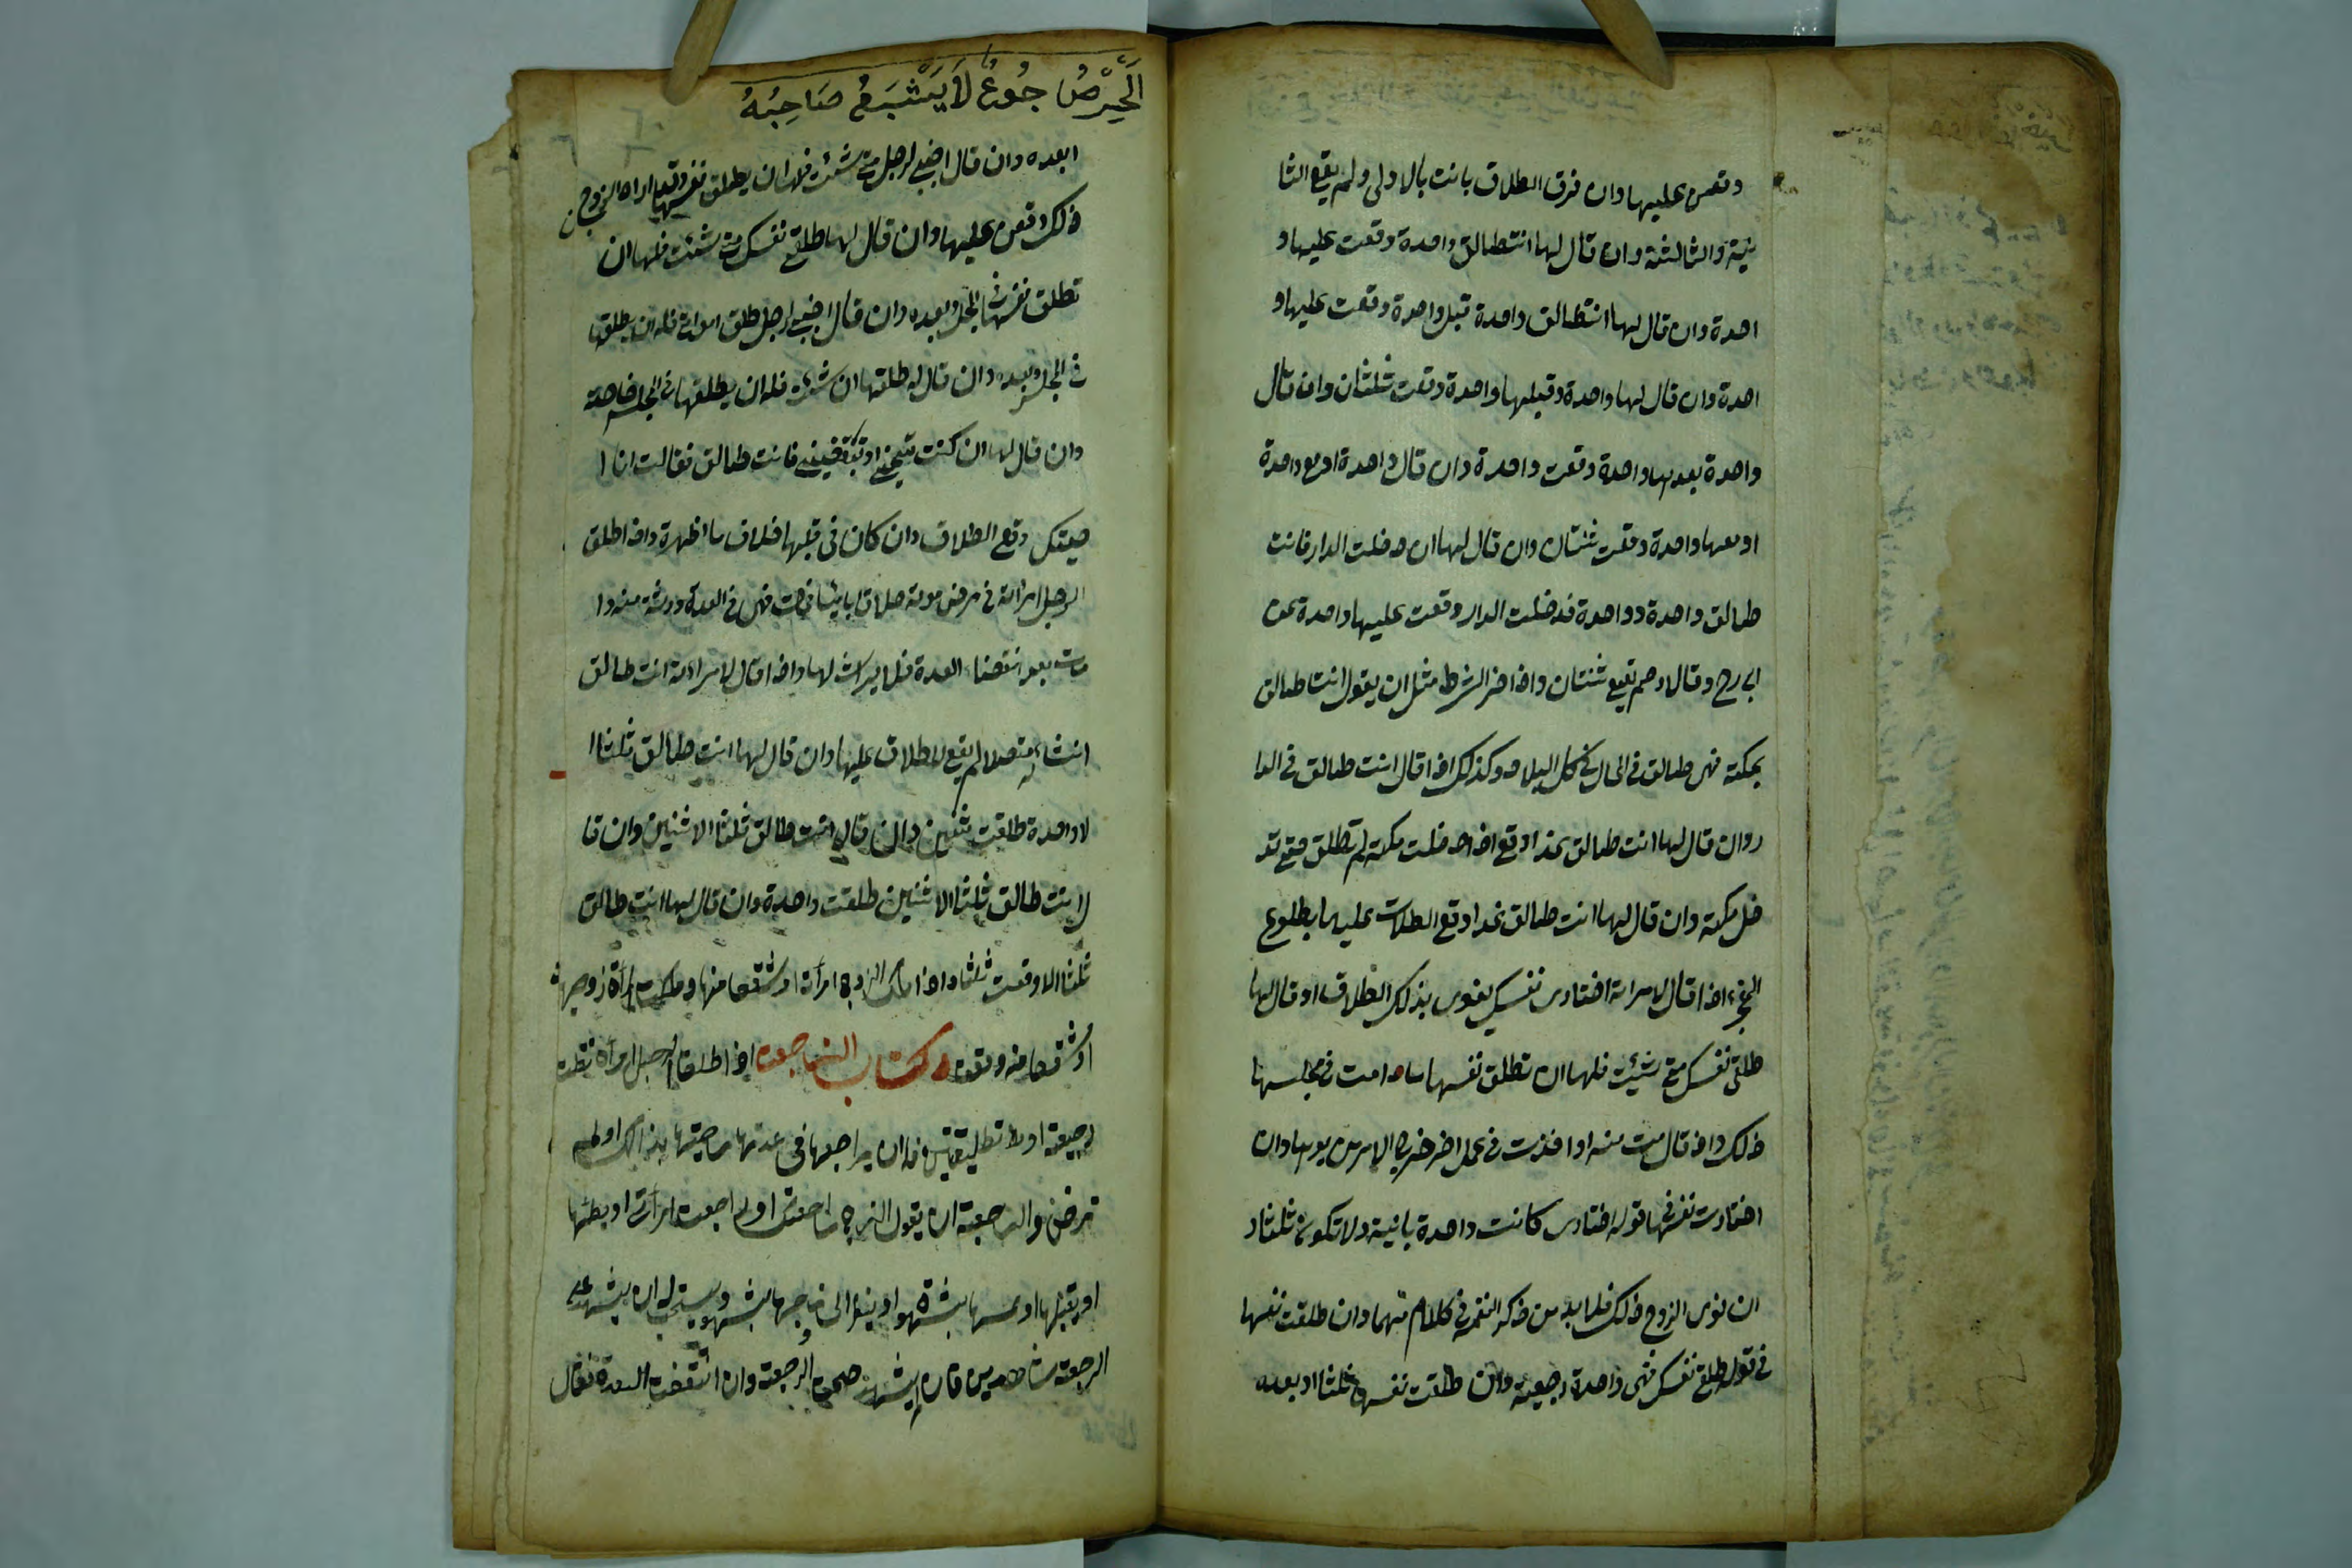 وقعن عليها وان فرق الطلاق بانت بالاولى ولم يقع الثا
نية والثالثة وان قال لها انت طالق واحدة وقعت عليها و
احدة وان قال لها انت طالق واحدة قبل واحدة وقعت عليها و
احدة وان قال لها واحدة وقبلها واحدة وقعت ثلثان وان قال
واحدة بعدها واحدة وقعت واحدة وان قال واحدة او مع واحدة
او معها واحدة وقعت ثنتان وان قال لها ان دخلت الدار فانت
طالق واحدة وواحدة فدخلت الدار وقعت عليها واحدة عن
ابي رح وقالا رحم تقع ثنتان واذا اخر الشرط مثل ان يقول انت طالق
بمكة فهى طالق فى الحال فى كل البلاد وكذلك اذا قال انت طالق فى الدا
ر وان قال لها انت طالق اذا دخلت مكة لم تطلق حتى تد
خل مكة وان قال لها انت طالق غدا وقع الطلاق عليها بطلوع
الفجر اذا قال لامراته اختارى نفسك ينوى بذلك الطلاق او قال لها
طلقى نفسك متى شئت فلها ان تطلق نفسها ما دامت فى مجلسها
ذلك واذ قامت منه او اخذت فى عمل اخر خرج الامر من يدها وان
اختارت نفسها فى قوله اختارى كانت واحدة باينة ولا تكون ثلثا و
ان نوى الزوج ذلك فلا بد من ذكر النفس فى كلامهما وان طلقت نفسها
فى قوله طلقى نفسك فهى واحدة رجعية وان طلقت نفسها ثلثا او بعده
اَلْحِرْصُ جُوعٌ لَا يَشْبَعُ صَاحِبُهُ
ابعده وان قال اجنبى لرجل متى شئت فله ان يطلق نفسها وقد اراد الزوج
ذلك وقعن عليها وان قال لها طلقى نفسك متى شئت فلها ان
تطلق نفسها فى المجلس وبعده وان قال اجنبى لرجل طلق امراتى فله ان يطلقها
فى المجلس وبعده وان قال له طلقها ان شئت فله ان يطلقها فى المجلس خاصة
وان قال لها ان كنت تحبينى او تبغضينى فانت طالق فقالت انا ا
حبك وقع الطلاق وان كان فى قلبها خلاف ما اظهرت واذا طلق
الرجل امراته فى مرض موته طلاقا باينا فمات فهى فى العدة ورثته منه وا
مات بعد انقضاء العدة فلا ميراث لها واذا قال لامراته انت طالق
انشاء الله متصلا لم يقع الطلاق عليها وان قال لها انت طالق ثلثا ا
لا واحدة طلقت ثنتين وان قال انت طالق ثلثا الا ثنتين وان قا
ل انت طالق ثلثا الا ثنتين طلقت واحدة وان قال لها انت طالق
ثلثا الا وقعت ثلثا واذا ملك الزوج امرأته او شقصا منها وملكت المرأة زوجها
او شقصا منه وقعت كتاب الرجعة اذا طلق الرجل امرأة تطلـ
رجيعة او تطليقتين فله ان يراجعها فى عدتها رضيتها بذالك او لم
ترض والرجعة ان يقول الزوج راجعتك او راجعت امرأتى او يطئها
او يقبلها او يمسها بشهوة او ينظر الى فرجها بشهوة ويستحب ان يشهد على
الرجعة شاهدين فان لم يشهد صحت الرجعة وان انقضت العدة فقال